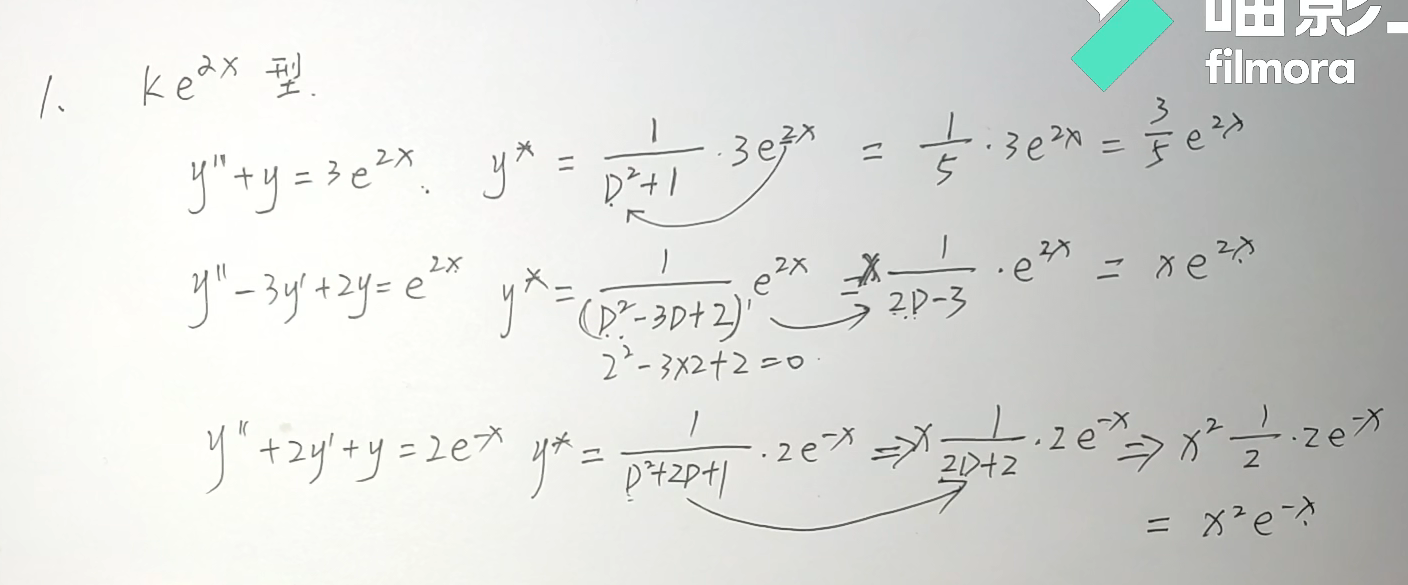 喵影
filmora
1、 ke^{2x} 型.
y''+y=3e^{2x}. y*= \frac{1}{D²+1}·3e^{2x} = \frac{1}{5}·3e^{2x} = \frac{3}{5}e^{2x}
y''-3y'+2y=e^{2x} y*= \frac{1}{(D²-3D+2)'}e^{2x} = x\frac{1}{2D-3}·e^{2x} = xe^{2x}
2²-3×2+2=0
y''+2y'+y=2e^{-x} y*= \frac{1}{D²+2D+1}·2e^{-x} ⇒ x\frac{1}{2D+2}·2e^{-x} ⇒ x²\frac{1}{2}·2e^{-x}
= x²e^{-x}